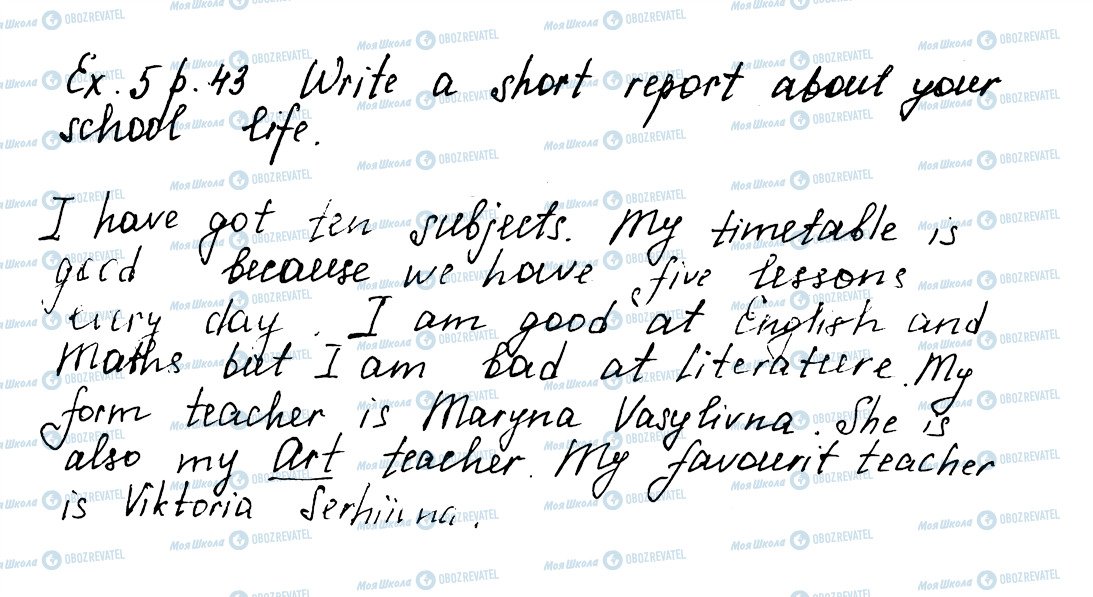 Ex. 5 p. 43 Write a short report about your
school life.
I have got ten subjects. My timetable is
good because we have five lessons
every day. I am good at English and
Maths but I am bad at literature. My
form teacher is Maryna Vasylivna. She is
also my Art teacher. My favourit teacher
is Viktoria Serhiivna.